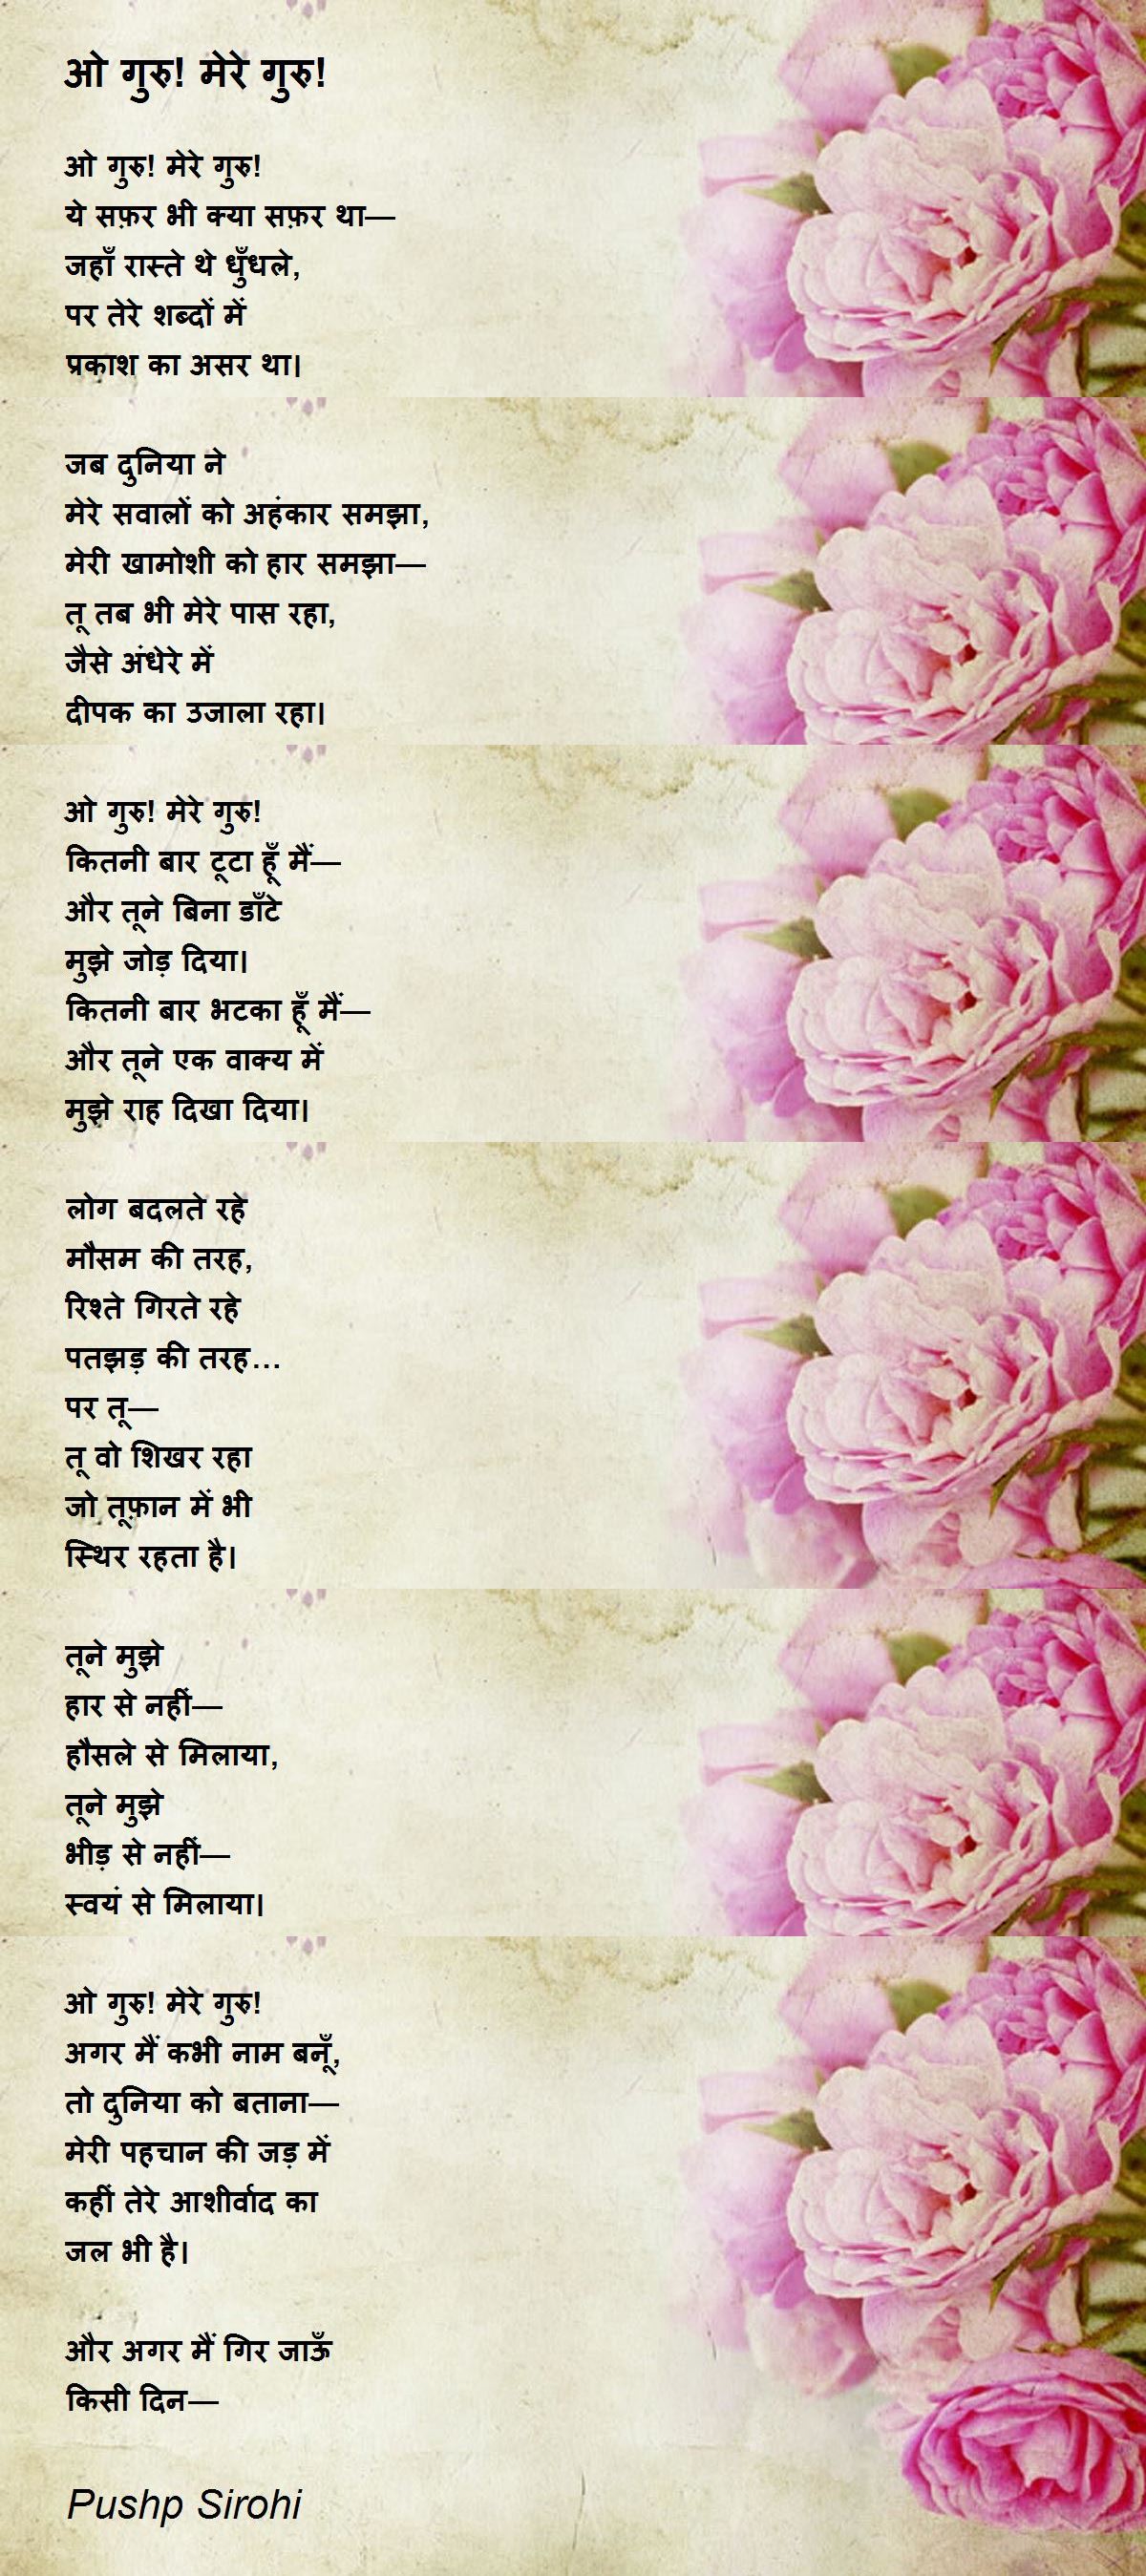 ओ गुरु! मेरे गुरु!
ओ गुरु! मेरे गुरु!
ये सफ़र भी क्या सफ़र था—
जहाँ रास्ते थे धुँधले,
पर तेरे शब्दों में
प्रकाश का असर था।
जब दुनिया ने
मेरे सवालों को अहंकार समझा,
मेरी खामोशी को हार समझा—
तू तब भी मेरे पास रहा,
जैसे अंधेरे में
दीपक का उजाला रहा।
ओ गुरु! मेरे गुरु!
कितनी बार टूटा हूँ मैं—
और तूने बिना डाँटे
मुझे जोड़ दिया।
कितनी बार भटका हूँ मैं—
और तूने एक वाक्य में
मुझे राह दिखा दिया।
लोग बदलते रहे
मौसम की तरह,
रिश्ते गिरते रहे
पतझड़ की तरह…
पर तू—
तू वो शिखर रहा
जो तूफ़ान में भी
स्थिर रहता है।
तूने मुझे
हार से नहीं—
हौसले से मिलाया,
तूने मुझे
भीड़ से नहीं—
स्वयं से मिलाया।
ओ गुरु! मेरे गुरु!
अगर मैं कभी नाम बनूँ,
तो दुनिया को बताना—
मेरी पहचान की जड़ में
कहीं तेरे आशीर्वाद का
जल भी है।
और अगर मैं गिर जाऊँ
किसी दिन—
Pushp Sirohi